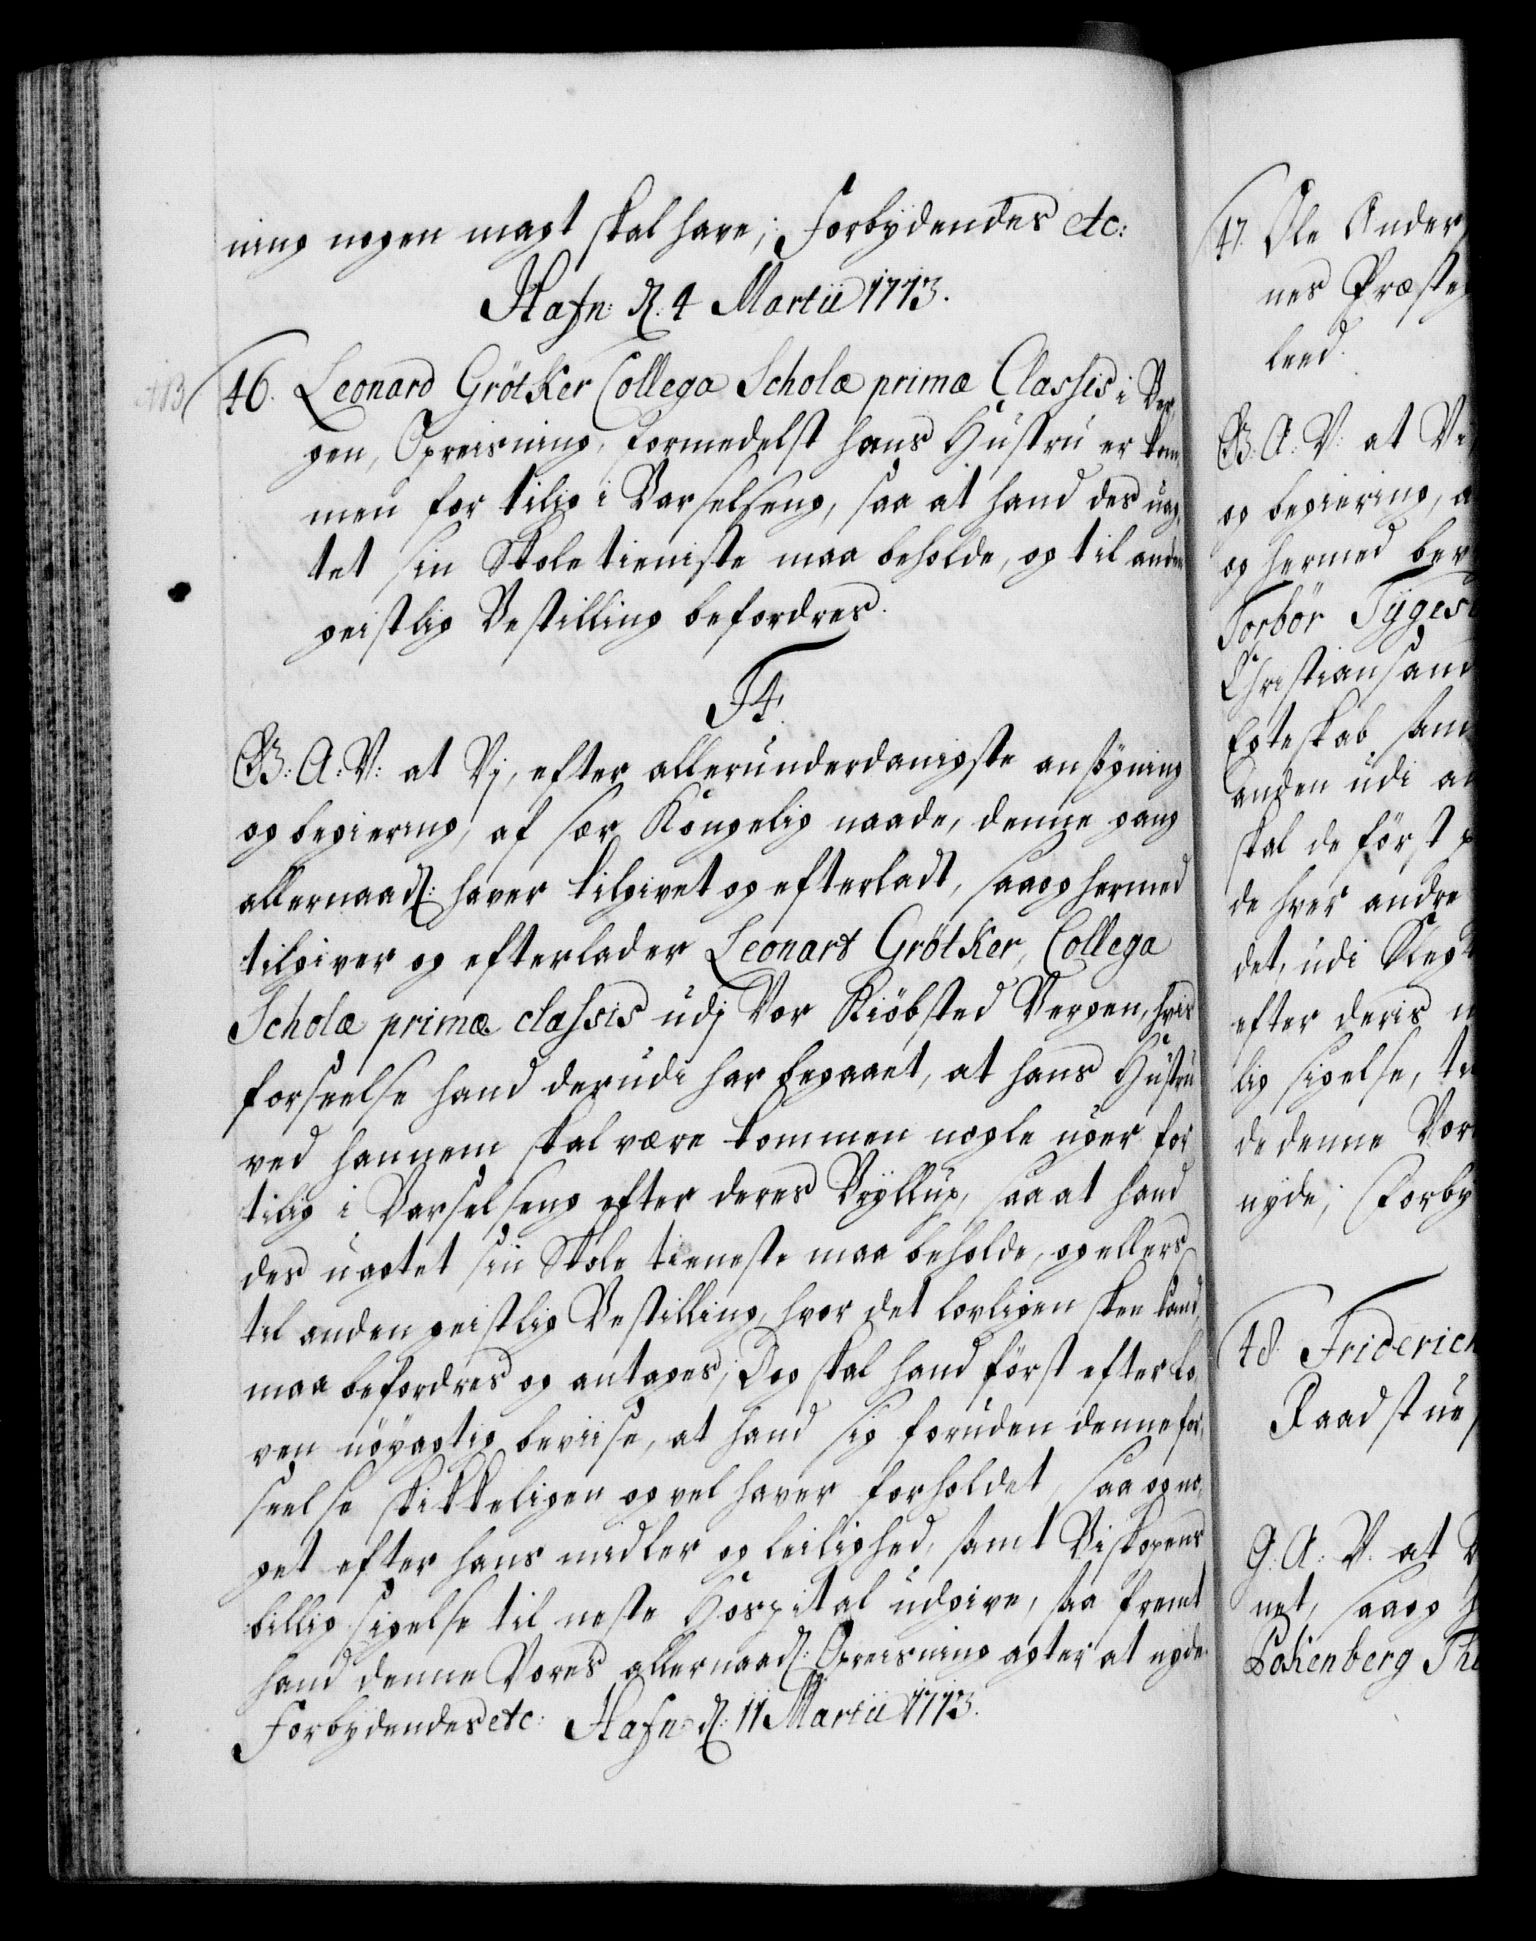 ning nogen magt skal have; Forbydendes etc:
Hafn: d. 4 Martii 1713.
46. Leonard Grötker Collega Scholæ primæ Classis i Ber,
gen, Opreisning, formedelst hans Hustru er kom,
men for tilig i Barselseng, saa at hand des uag,
tet sin Skole tieniste maa beholde, og til anden
geistlig Bestilling befordres.
F4.
G: A: V: at Vj, efter allerunderdanigste ansögning
og begiering, af sær Kongelig naade, denne gang
allernaad: haver tilgivet og efterladt, saa og hermed
tilgiver og efterlader Leonart Grötker, Collega
Scholæ primæ classis udj Vor Kiöbsted Bergen, hvis
forseelse hand derudi har begaaet, at hans Hustru
ved hannem skal være kommen nogle uger for
tilig i Barselseng efter deres Bryllup, saa at hand
des uagtet sin Skole tieneste maa beholde, og ellers
til anden geistlig Bestilling, hvor det lovligen skee kand,
maa befordres og antages; Dog skal hand först efter Lo,
ven nöyagtig beviise, at hand sig foruden denne for,
seelse skikkeligen og vel haver forholdet, saa og no,
get efter hans midler og leilighed, samt Biskopens
billig sigelse til neste Hospital udgive, saa fremt
hand denne Vores allernaad: Opreisning agter at nyde
Forbydendes etc: Hafn: d: 11 Martii 1713.
47. Ole Ander
nes Præste
leed.
G. A: V: at Vi
og begiering, a
og hermed ber
Torbör Tygesd
Christiansand
Egteskab sam
anden udi an
skal de först
de hver andre
det, udi
efter deris
lig sigelse, ti
de denne Vor
nyde; Forby
48. Friderich
Raadstue
G. A: V: at V
net, saa og